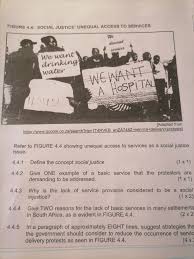 FIGURE 4.4 SOCIAL JUSTICE: UNEQUAL ACCESS TO SERVICES
We want
drinking
water
WE WANT
A HOSPITAL
[Adapted from
Refer to FIGURE 4.4 showing unequal access to services as a social justice
issue.
4.4.1 Define the concept social justice (1 x 1)
4.4.2 Give ONE example of a basic service that the protestors are
demanding to be addressed. (1 x 1)
4.4.3 Why is the lack of service provision considered to be a social
injustice? (1 x 2)
4.4.4 Give TWO reasons for the lack of basic services in many settlements
in South Africa, as is evident in FIGURE 4.4. (2 x 2)
4.4.5 In a paragraph of approximately EIGHT lines, suggest strategies that
the government should consider to reduce the occurrence of service
delivery protests as seen in FIGURE 4.4. (4 x 2)